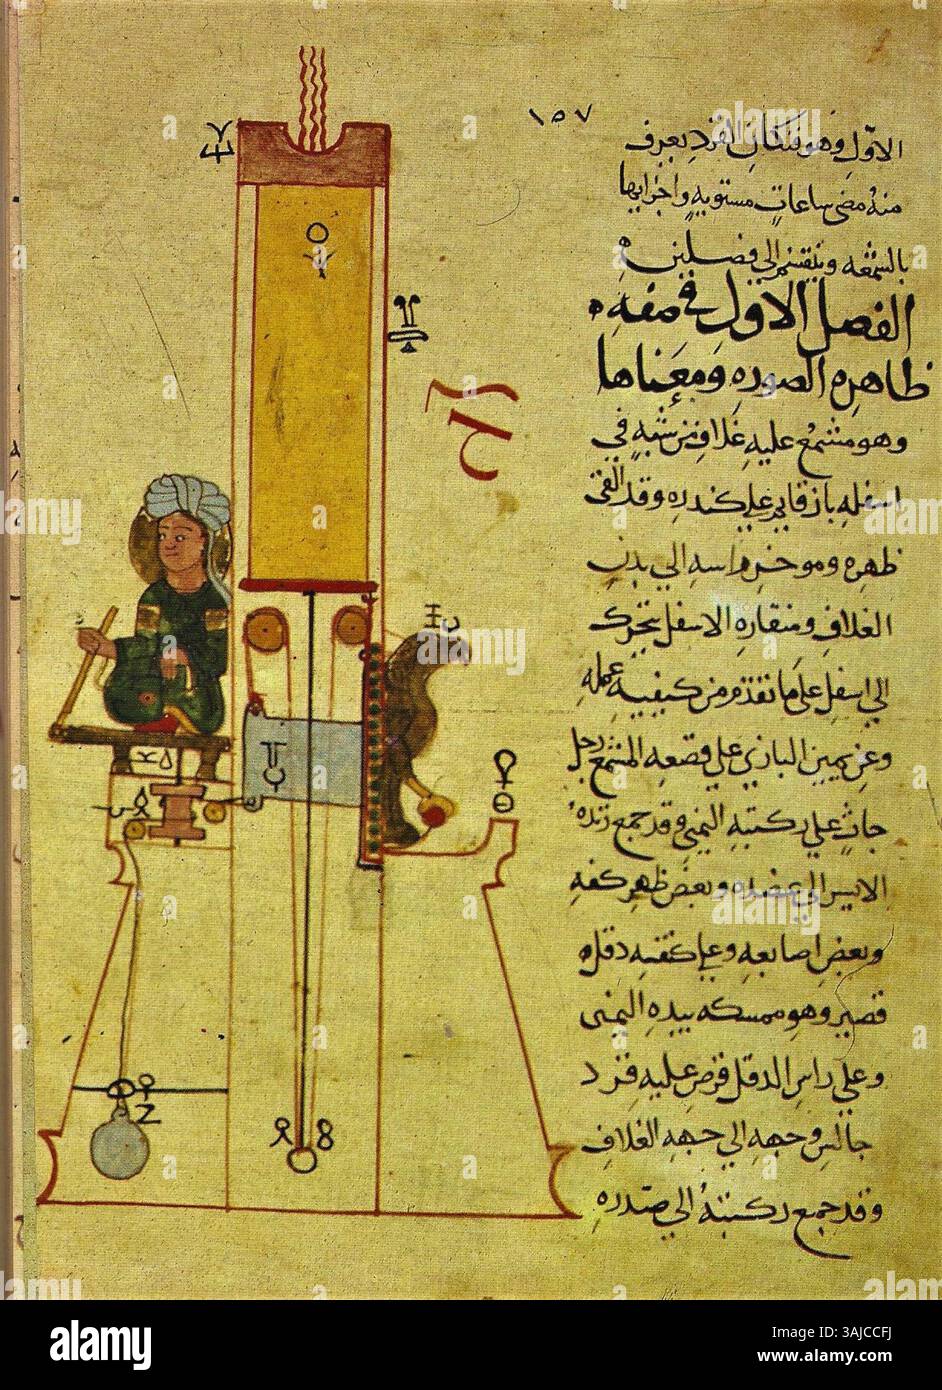 ١٥٧
الاول وهو فنكان القرد يعرف
منه مضى ساعات مستويه واجزايها
بالشمعه وينقسم الى فصلين
الفصل الاول في صفه
ظاهره الصوره ومعناها
وهو مشمع عليه غلاف من شبه في
اسفله باز قايم على كندره وقد القى
ظهره وموخر راسه الى بدن
الغلاف ومنقاره الاسفل يتحرك
الى اسفل على ما تقدم من كيفيه عمله
وعن يمين البازي على قصعه المشمع رجل
جاث على ركبته اليمنى وقد جمع زنده
الايسر الى عضده وبعض ظهر كفه
وبعض اصابعه وعلى كتفه دقل
قصير وهو ممسكه بيده اليمنى
وعلى راس الدقل قرص عليه قرد
جالس وجهه الى جهه الغلاف
وقد جمع ركبته الى صدره
alamy
Image ID: 3AJCCFJ
www.alamy.com